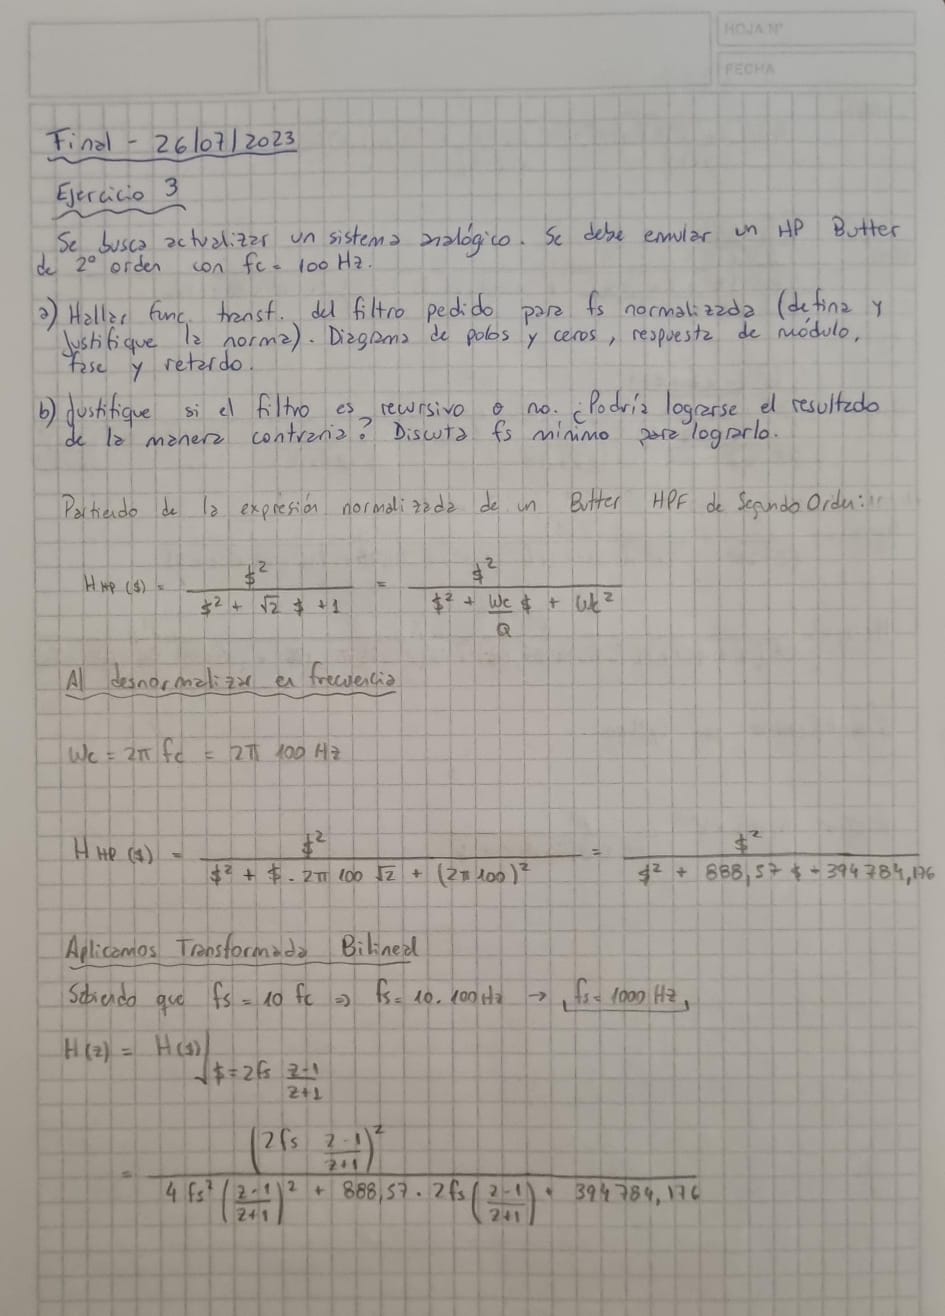 HOJA Nº
FECHA
Final - 26/07/2023
Ejercicio 3
Se busca actualizar un sistema analógico. Se debe emular un HP Butter
de 2º orden con fc = 100 Hz.
a) Hallar func. transf. del filtro pedido para fs normalizada (defina y
justifique la norma). Diagrama de polos y ceros, respuesta de módulo,
fase y retardo.
b) Justifique si el filtro es recursivo o no. ¿Podría lograrse el resultado
de la manera contraria? Discuta fs mínimo para lograrlo.
Partiendo de la expresión normalizada de un Butter HPF de Segundo Orden:
H HP ($) = $² / ($² + √2 $ + 1) = $² / ($² + Wc/Q $ + Wc²)
Al desnormalizar en frecuencia
Wc = 2π fc = 2π 100 Hz
H HP ($) = $² / ($² + $ . 2π 100 √2 + (2π 100)²) = $² / ($² + 888,57 $ + 394784,176)
Aplicamos Transformada Bilineal
Sabiendo que fs = 10 fc => fs = 10. 100 Hz → fs = 1000 Hz
H(z) = H($)|
$ = 2fs (z-1)/(z+1)
= (2fs (z-1)/(z+1))² / (4 fs² ((z-1)/(z+1))² + 888,57 . 2fs ((z-1)/(z+1)) + 394784,176)